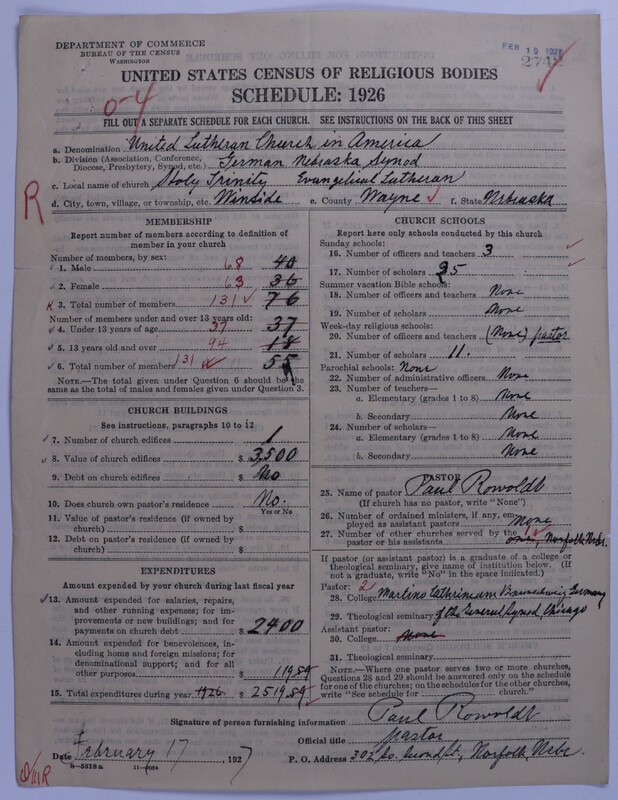 DEPARTMENT OF COMMERCE
BUREAU OF THE CENSUS
WASHINGTON
FEB 19 1927
2742
UNITED STATES CENSUS OF RELIGIOUS BODIES
SCHEDULE: 1926
0-4
FILL OUT A SEPARATE SCHEDULE FOR EACH CHURCH. SEE INSTRUCTIONS ON THE BACK OF THIS SHEET
a. Denomination United Lutheran Church in America
b. Division (Association, Conference, Diocese, Presbytery, Synod, etc.) German Nebraska Synod
c. Local name of church Holy Trinity Evangelical Lutheran
R
d. City, town, village, or township, etc. Winside e. County Wayne f. State Nebraska
MEMBERSHIP
Report number of members according to definition of
member in your church
Number of members, by sex:
1. Male 68 40
2. Female 63 36
3. Total number of members 131 76
Number of members under and over 13 years old:
4. Under 13 years of age 37 37
5. 13 years old and over 94 18
6. Total number of members 131 55
NOTE.—The total given under Question 6 should be the
same as the total of males and females given under Question 3.
CHURCH BUILDINGS
See instructions, paragraphs 10 to 12
7. Number of church edifices 1
8. Value of church edifices $ 3,500
9. Debt on church edifices $ No
10. Does church own pastor's residence? No.
Yes or No
11. Value of pastor's residence (if owned by
church) $
12. Debt on pastor's residence (if owned by
church) $
EXPENDITURES
Amount expended by your church during last fiscal year
13. Amount expended for salaries, repairs,
and other running expenses; for im-
provements or new buildings; and for
payments on church debt $ 2400
14. Amount expended for benevolences, in-
cluding home and foreign missions; for
denominational support; and for all
other purposes $ 119.84
15. Total expenditures during year 1926 $ 2519.84
CHURCH SCHOOLS
Report here only schools conducted by this church
Sunday schools:
16. Number of officers and teachers 3
17. Number of scholars 25
Summer vacation Bible schools:
18. Number of officers and teachers None
19. Number of scholars None
Week-day religious schools:
20. Number of officers and teachers (None) pastor
21. Number of scholars 11.
Parochial schools: None
22. Number of administrative officers None
23. Number of teachers—
a. Elementary (grades 1 to 8) None
b. Secondary None
24. Number of scholars—
a. Elementary (grades 1 to 8) None
b. Secondary None
PASTOR
25. Name of pastor Paul Rowoldt
(If church has no pastor, write "None")
26. Number of ordained ministers, if any, em-
ployed as assistant pastors none
27. Number of other churches served by the 1
pastor or his assistants one, Norfolk Nebr.
If pastor (or assistant pastor) is a graduate of a college or
theological seminary, give name of institution below. (If
not a graduate, write "No" in the space indicated.)
Pastor: 2
28. College Martino Cathrineum Braunschweig Germany
29. Theological seminary of the General Synod, Chicago
Assistant pastor:
30. College None
31. Theological seminary
NOTE.—Where one pastor serves two or more churches,
Questions 28 and 29 should be answered only on the schedule
for one of the churches; on the schedules for the other churches,
write "See schedule for church."
Signature of person furnishing information Paul Rowoldt
Official title pastor
Date February 17, 1927 P. O. Address 302 So. Second St., Norfolk, Nebr.
8—5518 a 11—9034